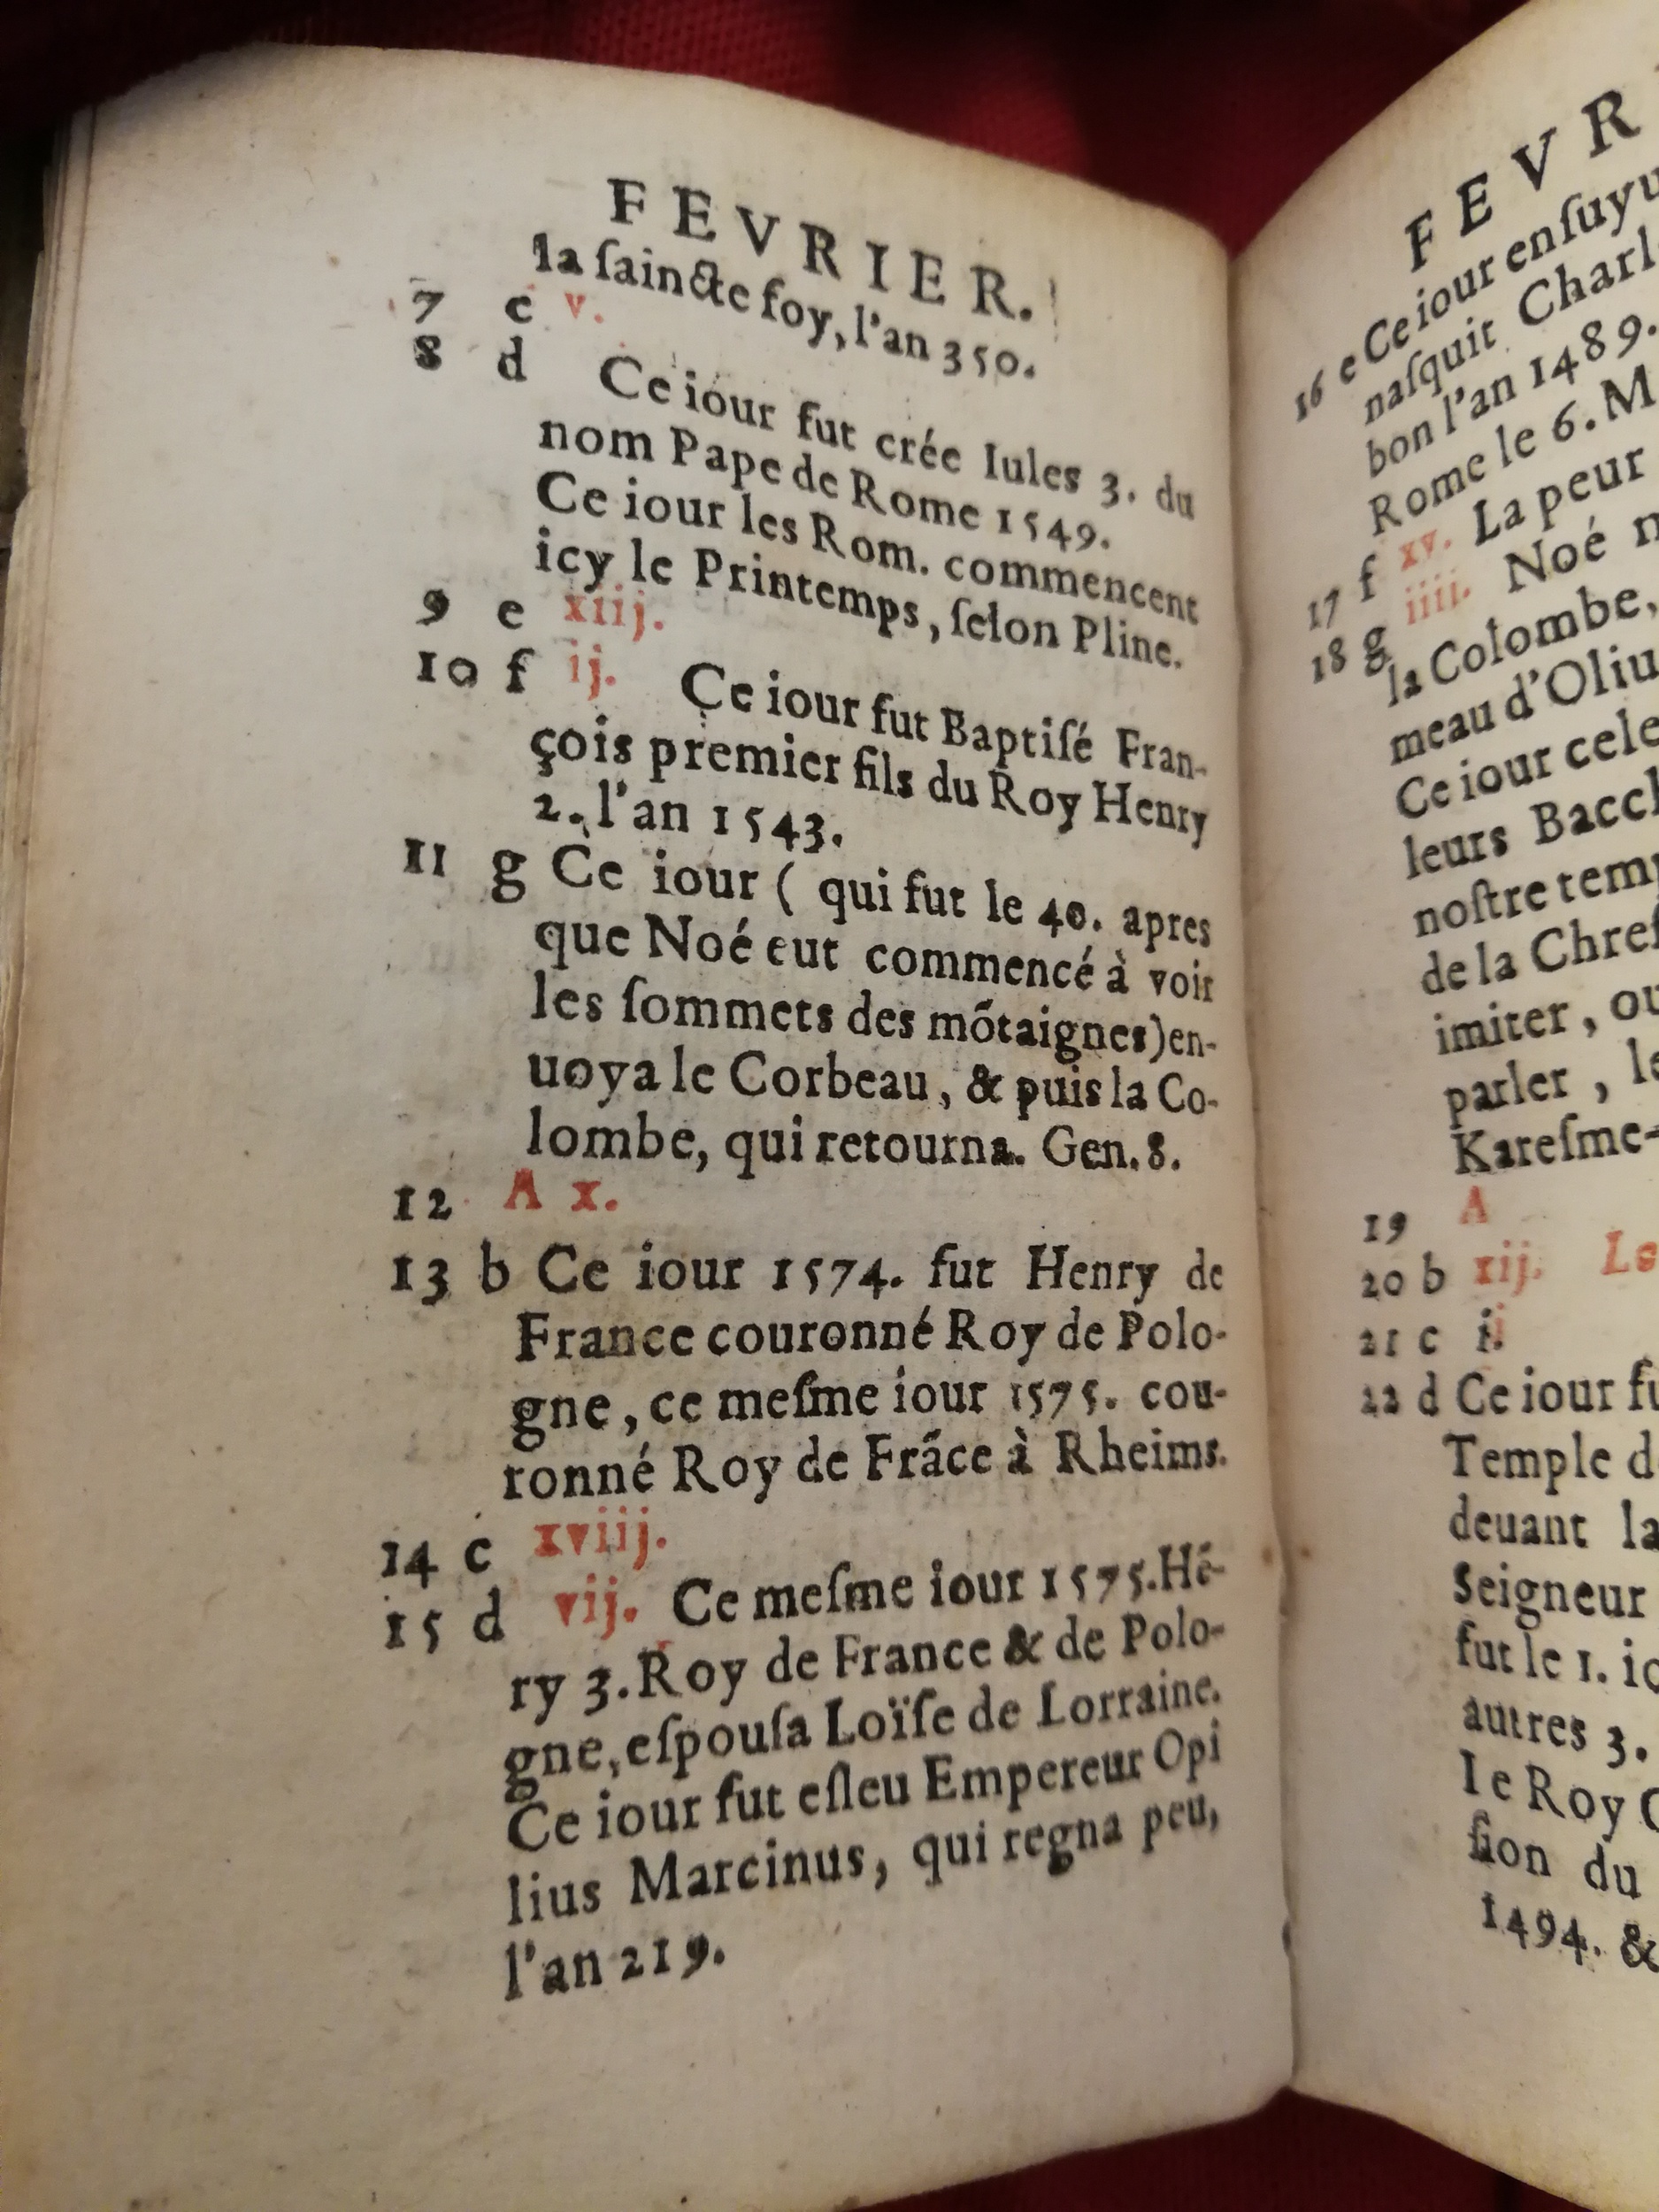 FEVRIER.
la ſaincte foy, l'an 350.
7 c v.
8 d Ce iour fut crée Iules 3. du
nom Pape de Rome 1549.
Ce iour les Rom. commencent
icy le Printemps, ſelon Pline.
9 e xiij.
10 f ij. Ce iour fut Baptiſé Fran-
çois premier fils du Roy Henry
2. l'an 1543.
11 g Ce iour ( qui fut le 40. apres
que Noé eut commencé à voir
les ſommets des mõtaignes) en-
uoya le Corbeau, & puis la Co-
lombe, qui retourna. Gen. 8.
12 A x.
13 b Ce iour 1574. fut Henry de
France couronné Roy de Polo-
gne, ce meſme iour 1575. cou-
ronné Roy de Frãce à Rheims.
14 c xviij.
15 d vij. Ce meſme iour 1575. Hẽ-
ry 3. Roy de France & de Polo-
gne, eſpouſa Loïſe de Lorraine.
Ce iour fut eſleu Empereur Opi
lius Marcinus, qui regna peu,
l'an 219.
FEVR
16 e Ce iour enſuyu
naſquit Charl
bon l'an 1489.
Rome le 6. M
17 f xv. La peur
18 g iiii. Noé n
la Colombe,
meau d'Oliu
Ce iour cele
leurs Bacch
noſtre temp
de la Chreſ
imiter, ou
parler, le
Kareſme-
19 A
20 b xij. Le
21 c i
22 d Ce iour fu
Temple d
deuant la
Seigneur
fut le 1. io
autres 3.
Ie Roy C
ſion du
1494. &